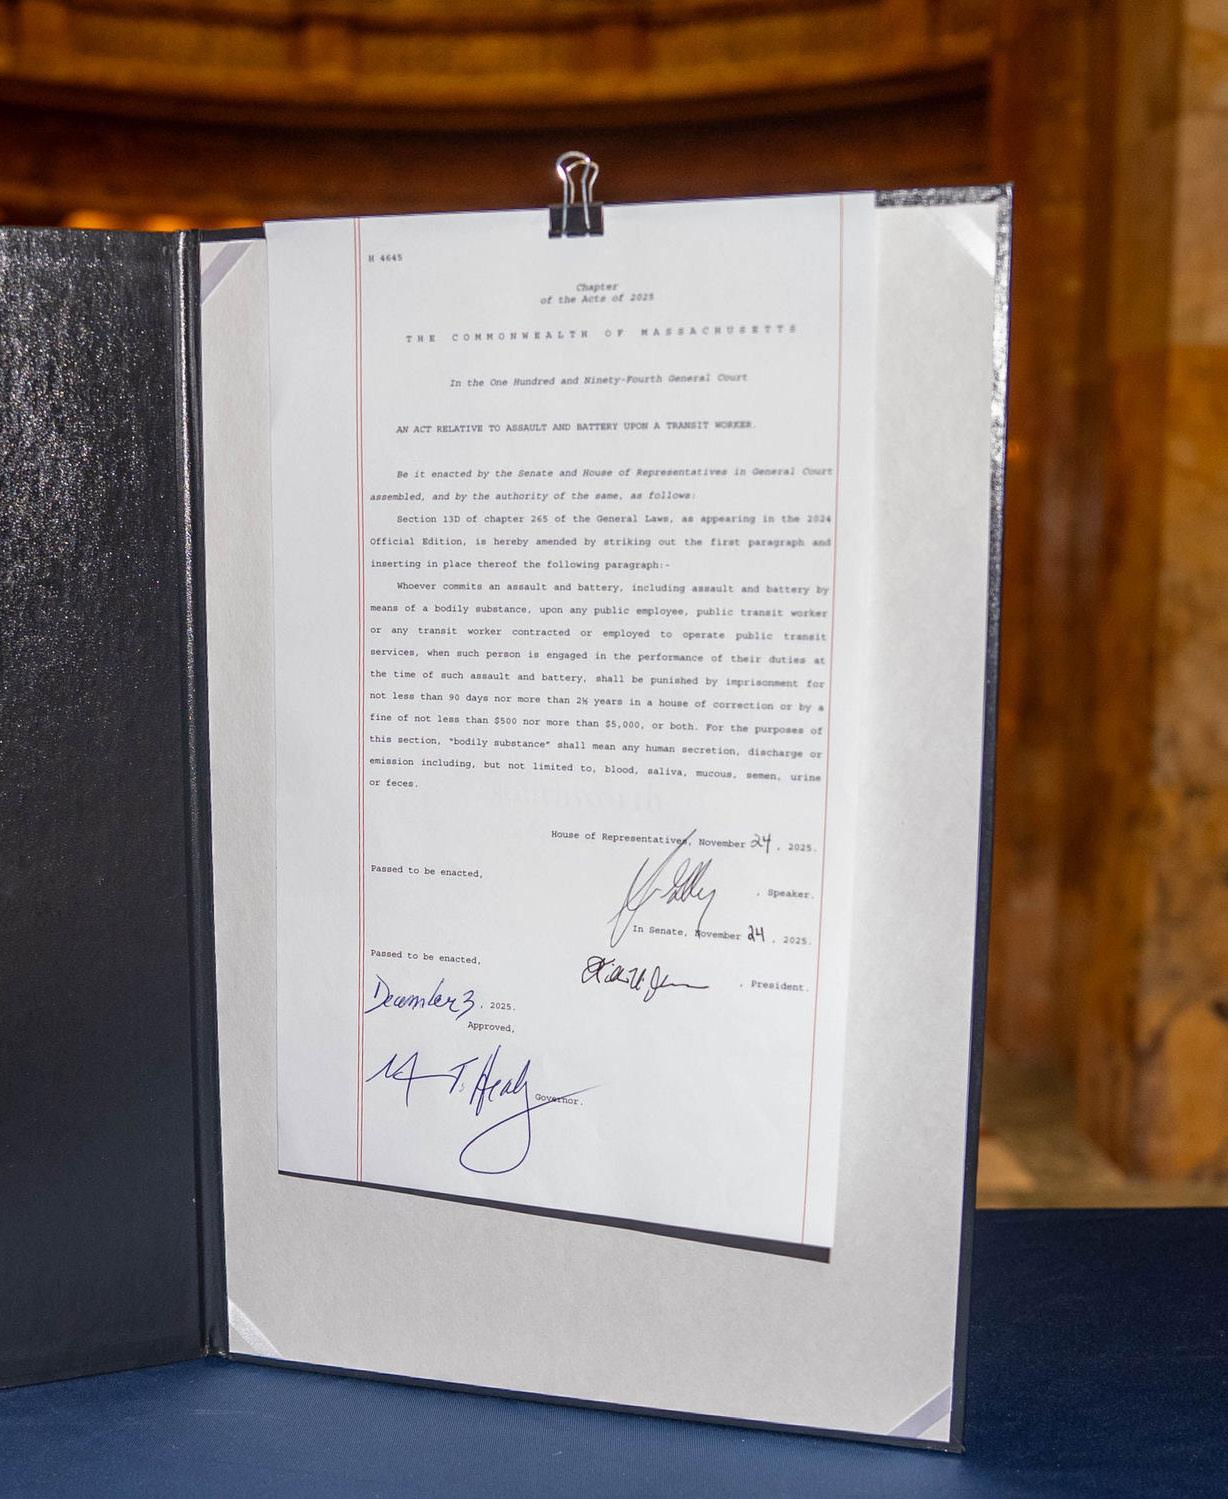 H 4645
Chapter
of the Acts of 2025
THE COMMONWEALTH OF MASSACHUSETTS
In the One Hundred and Ninety-Fourth General Court
AN ACT RELATIVE TO ASSAULT AND BATTERY UPON A TRANSIT WORKER.
Be it enacted by the Senate and House of Representatives in General Court
assembled, and by the authority of the same, as follows:
Section 13D of chapter 265 of the General Laws, as appearing in the 2024
Official Edition, is hereby amended by striking out the first paragraph and
inserting in place thereof the following paragraph:-
Whoever commits an assault and battery, including assault and battery by
means of a bodily substance, upon any public employee, public transit worker
or any transit worker contracted or employed to operate public transit
services, when such person is engaged in the performance of their duties at
the time of such assault and battery, shall be punished by imprisonment for
not less than 90 days nor more than 2½ years in a house of correction or by a
fine of not less than $500 nor more than $5,000, or both. For the purposes of
this section, "bodily substance" shall mean any human secretion, discharge or
emission including, but not limited to, blood, saliva, mucous, semen, urine
or feces.
House of Representatives, November 24, 2025.
Passed to be enacted,
, Speaker.
In Senate, November 24, 2025.
Passed to be enacted,
, President.
December 3, 2025.
Approved,
M T. Healy
Governor.